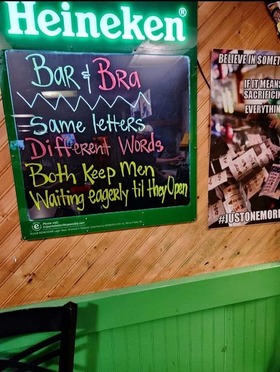 Heineken®
Bar & Bra
Same letters
Different Words
Both Keep Men
Waiting eagerly til they Open
BELIEVE IN SOMET
IF IT MEANS
SACRIFICI
EVERYTHIN
#JUSTONEMOR